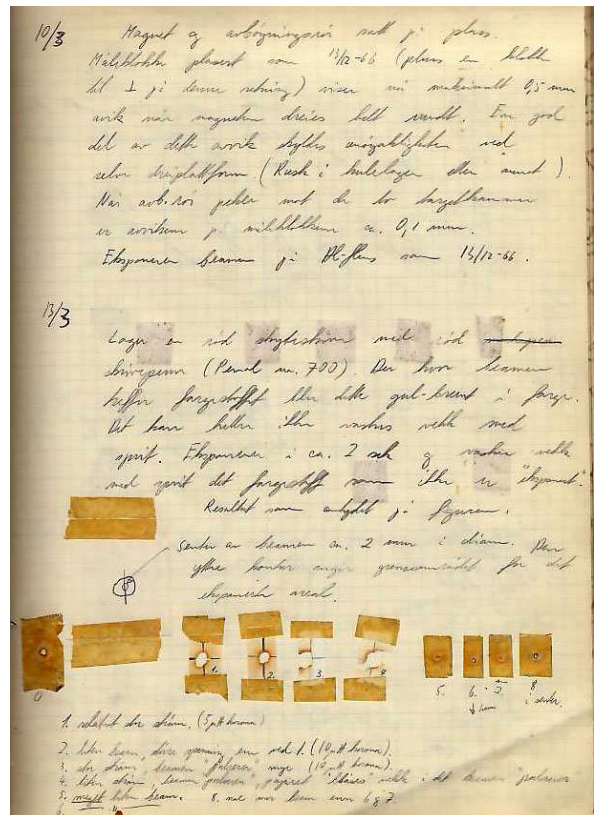 10/3
Magnet og avbøyningsrør satt på plass.
Måleklokke plasert som 13/12-66 (pluss en klokke
til ⊥ på denne retning) viser nå maksimalt 0,5 mm
avik når magneten dreies helt rundt. En god
del av dette avvik skyldes unøyaktigheten ved
selve dreieplattform (Rusk i kulelager eller annet).
Når avb.rør peker mot de to targetkammer
er avviken på måleklokken ca. 0,1 mm.
Eksponerer beamen på Al-flens som 13/12-66.
13/3
Lager en rød med rød
skrivepenn (Penol nr. 700). Der hvor beamen
treffer fargestoffet blir dette gul-brunt i farge.
Det kan heller ikke vaskes vekk med
sprit. Eksponerer i ca. 2 sek og vasker vekk
med sprit det fargestoff som ikke er "eksponert".
Resultat som antydet på figuren.
Senter av beamen ca. 2 mm i diam. Den
ytre kontur angir grenseområdet for det
eksponerte areal.
0 1. 2. 3 4 5. 6. 7. 8
i senter.
1. relativt stor strøm. (5 μA korona)
2. liten beam, større spenning enn ved 1. (10 μA korona).
3. stor strøm, beamen "pulserer" mye (10 μA korona).
4. liten strøm, beamen "pulserer", papiret "blåses" vekk i det beamen "pulserer"
5. meget liten beam. 8. noe mer beam enn 6 & 7
6. "